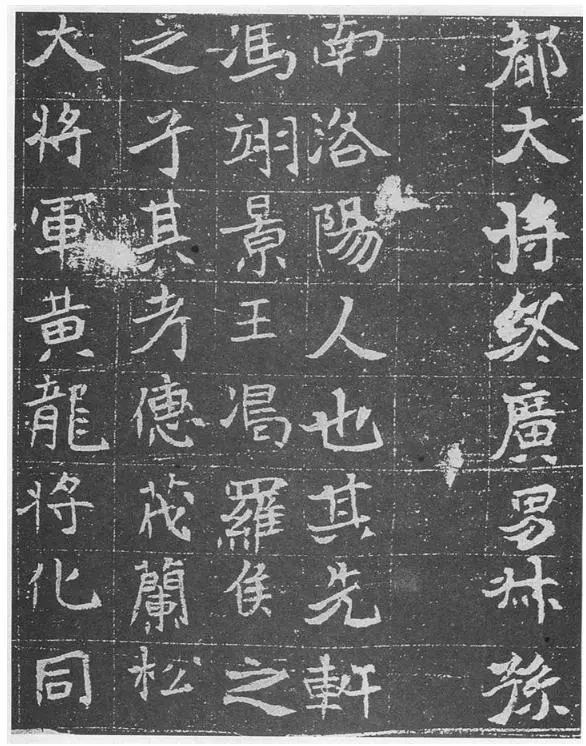 都大将終廣男叔孫
南洛陽人也其先軒
馮翊景王渴羅侯之
之子其考德茂蘭松
大将軍黄龍将化同